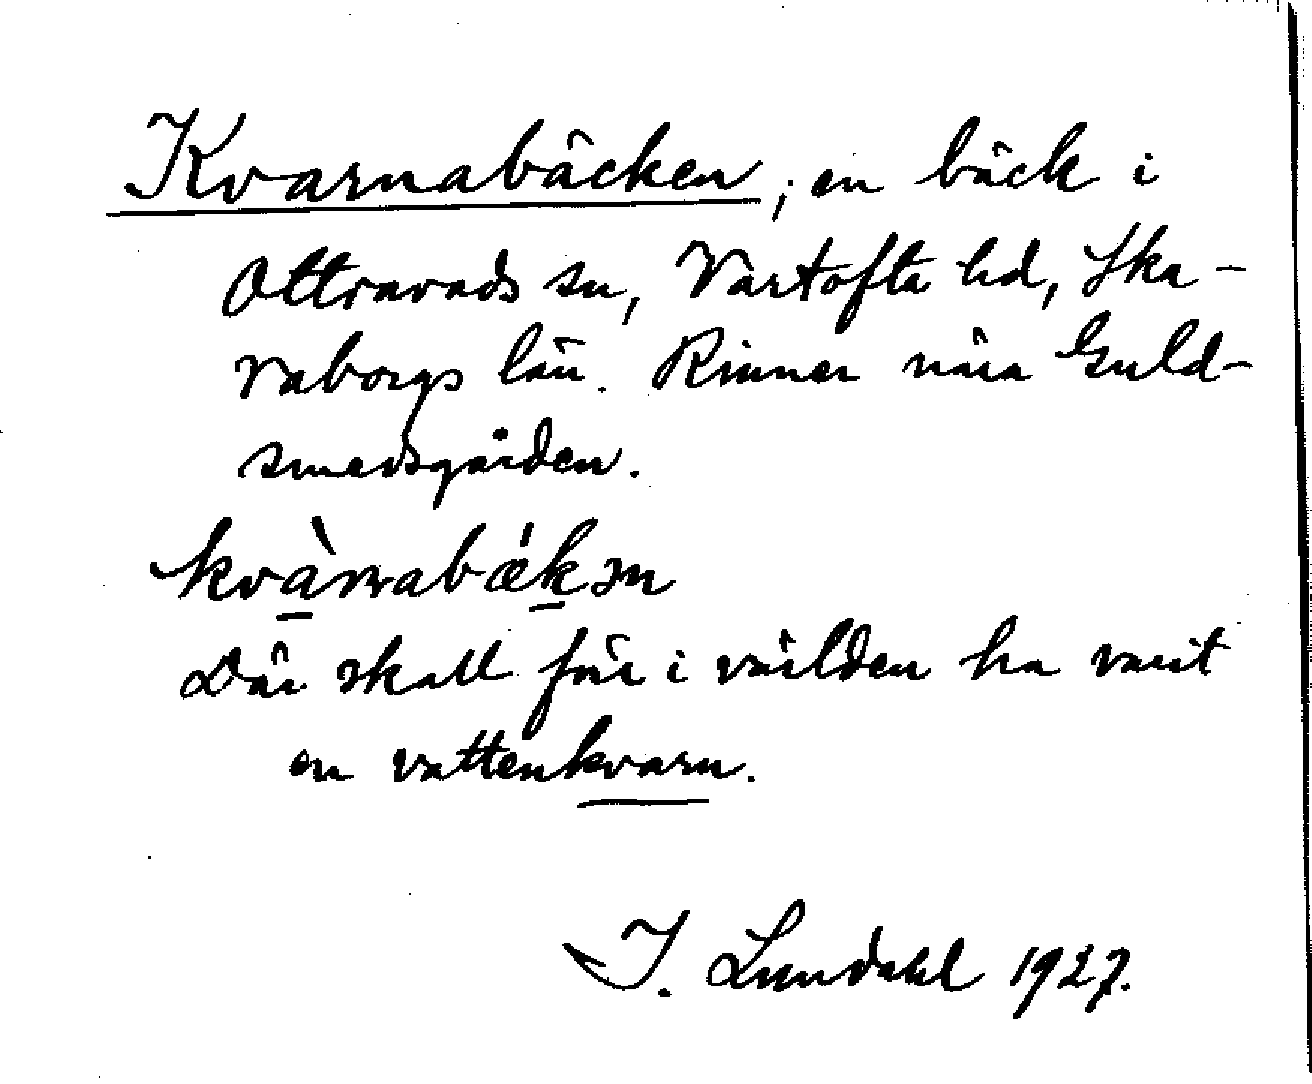 Kvarnabäcken, en bäck i
Ottravads sn, Vartofta hd, Ska-
raborgs län. Rinner nära Guld-
smedsgården.
kvàrnabǽkən
Där skall förr i världen ha varit
en vattenkvarn.
I. Lundahl 1927.